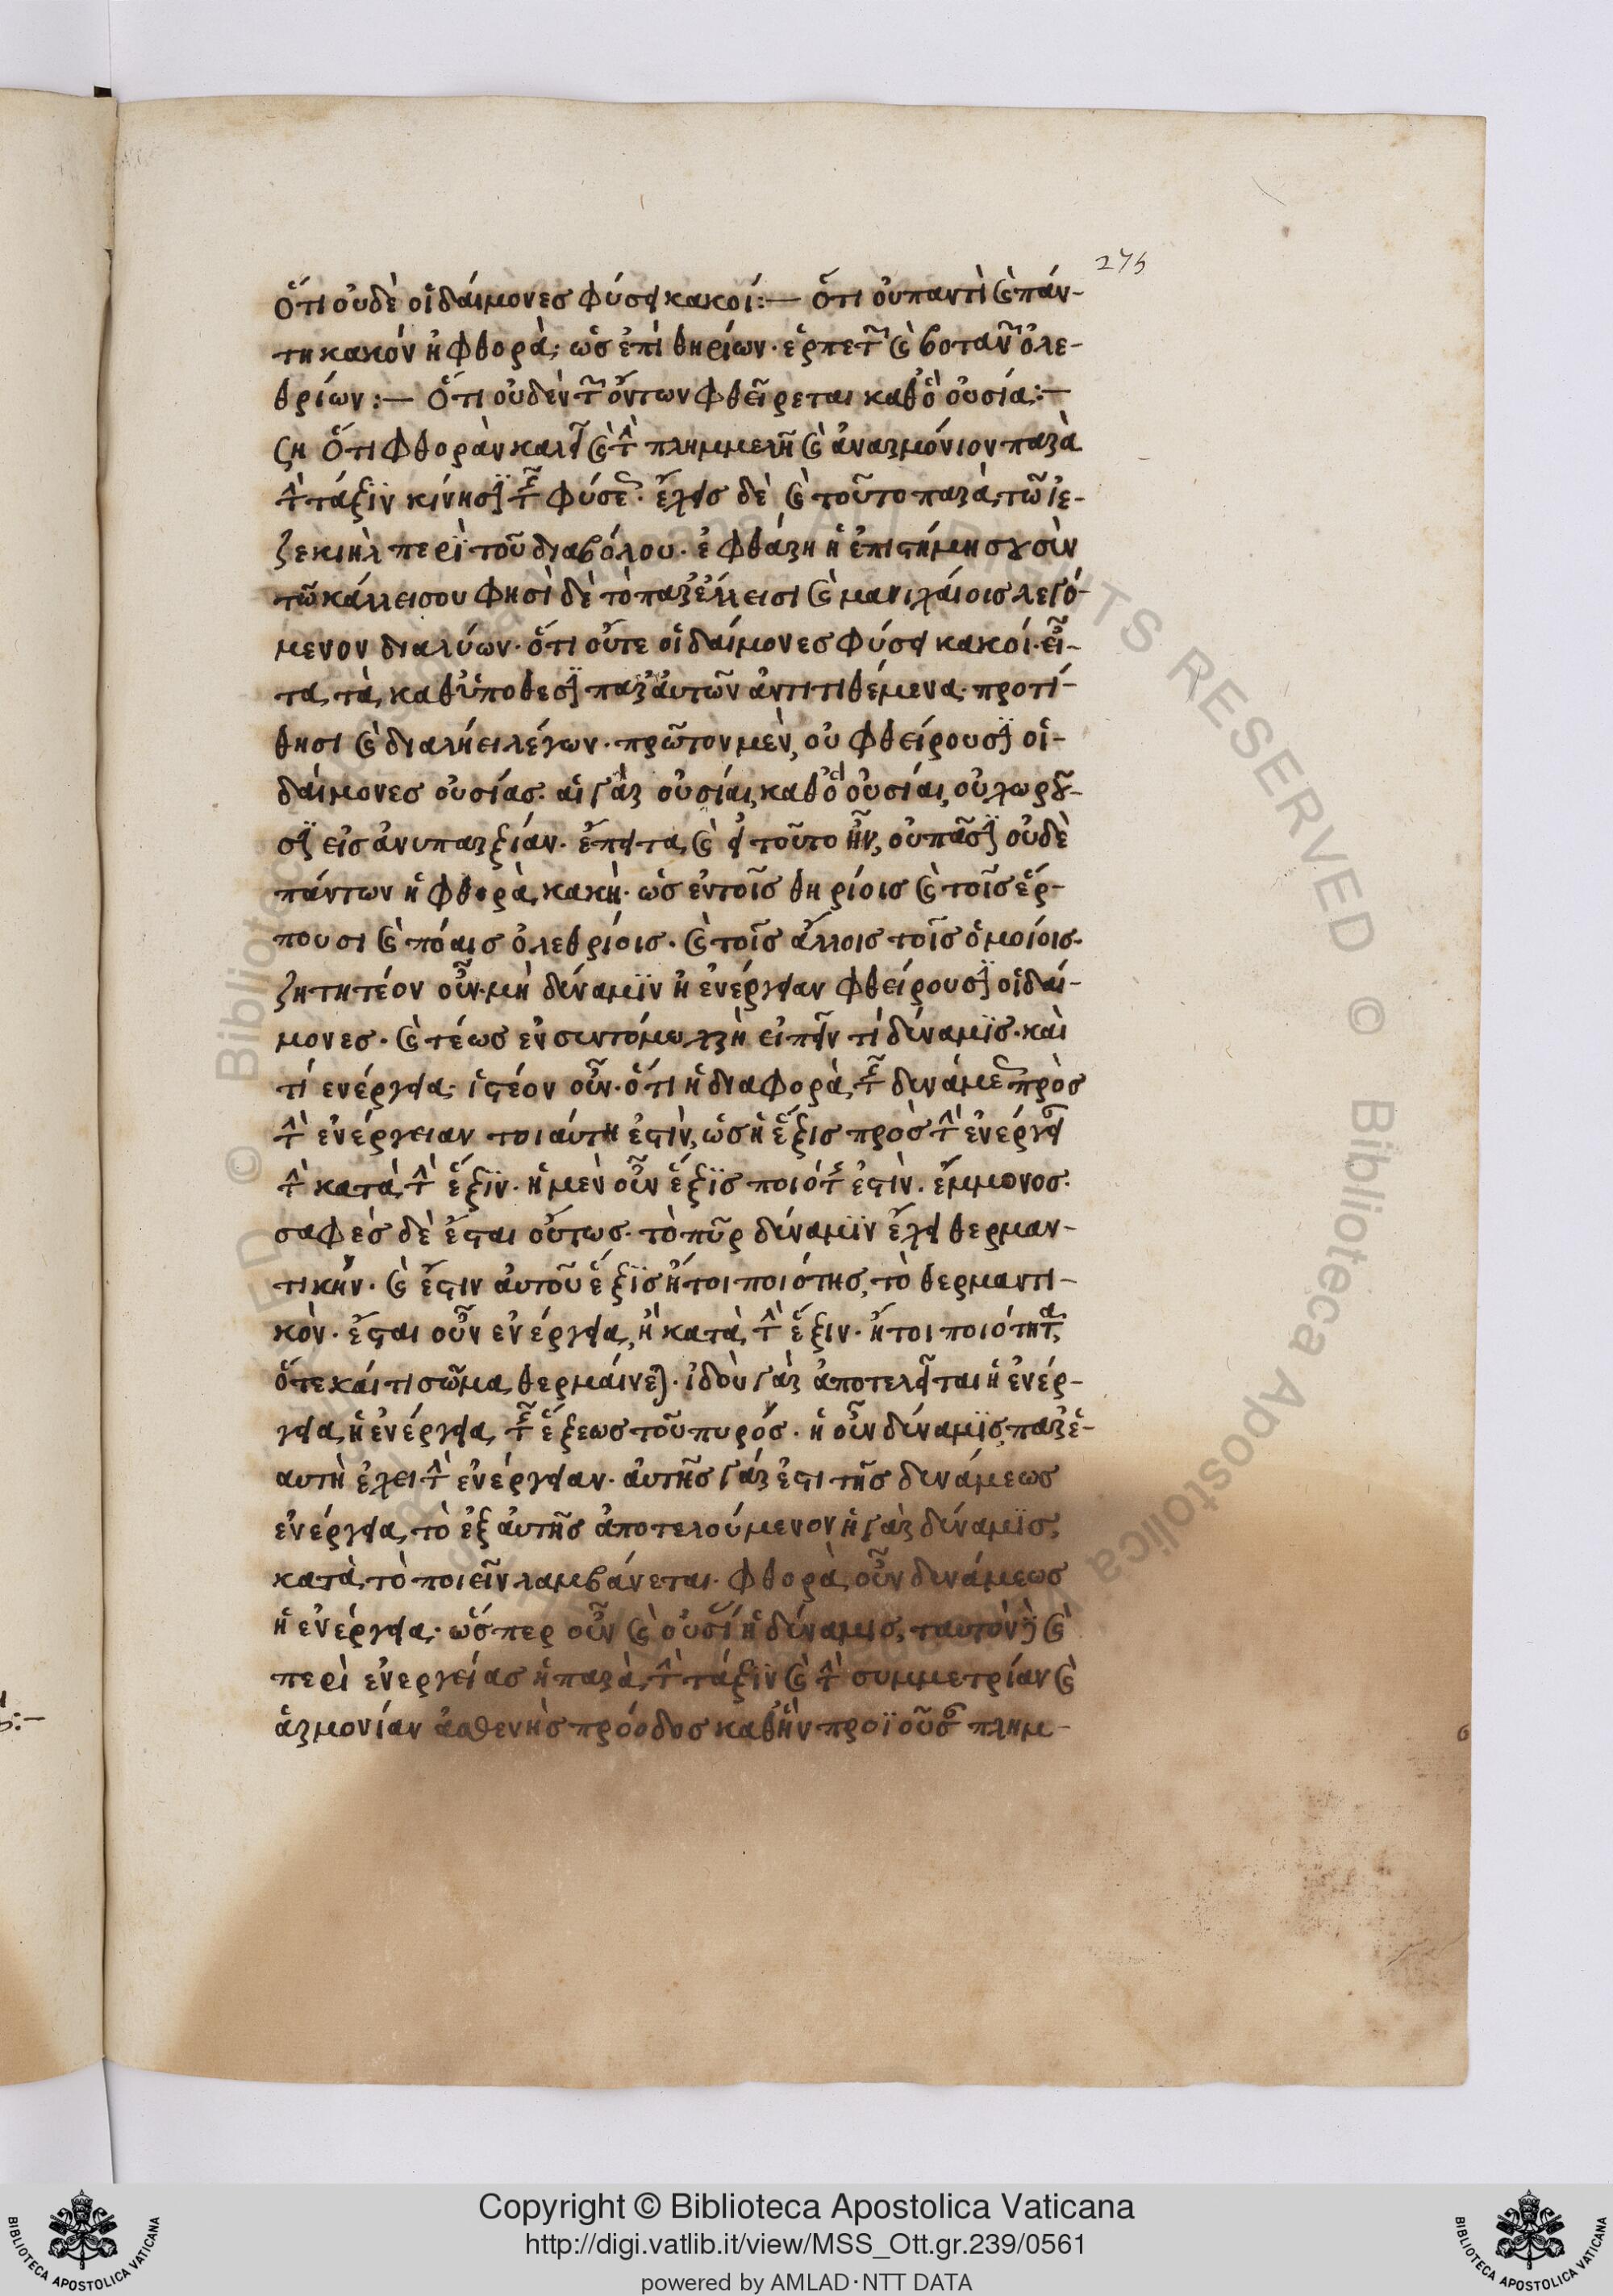 275
Ὅτι οὐδὲ οἱ δαίμονες φύσει κακοί:— ὅτι οὐ παντὶ καὶ πάν-
τη κακόν ἡ φθορὰ; ὡς ἐπὶ θηρίων· ἑρπετῶν καὶ βοτανῶν ὀλε-
θρίων:— Ὅτι οὐδὲν τῶν ὄντων φθείρεται καθὸ οὐσία:—
ση Ὅτι φθορὰν καλεῖ καὶ τὴν πλημμελῆ καὶ ἀναρμόνιον παρὰ
τὴν τάξιν κίνησιν τῆς φύσεως· ἔχεις δὲ καὶ τοῦτο παρὰ τῶ ἰε-
ζεκιὴλ περὶ τοῦ διαβόλου· ἐφθάρη ἡ ἐπιστήμη σου σὺν
τῶ κάλλει σου φησὶ δὲ τὸ παρ ἕλλεισι καὶ μανιχαίοις λεγό-
μενον διαλύων· ὅτι οὔτε οἱ δαίμονες φύσει κακοί· εἶ-
τα, τὰ, καθ ὑπόθεσιν παρ αὐτῶν ἀντιτιθέμενα· προτί-
θησι καὶ διαλύει λέγων· πρῶτον μὲν, οὐ φθείρουσιν οἱ-
δαίμονες οὐσίας· αἱ γὰρ οὐσίαι, καθὸ οὐσίαι, οὐ χωροῦ-
σιν εἰς ἀνυπαρξίαν· ἔπειτα, καὶ εἰ τοῦτο ἦν, οὐ πᾶσιν οὐδὲ
πάντων ἡ φθορὰ, κακὴ· ὡς ἐν τοῖς θηρίοις καὶ τοῖς ἕρ-
πουσι καὶ πόαις ὀλεθρίοις· καὶ τοῖς ἄλλοις τοῖς ὁμοίοις·
ζητητέον οὖν· μὴ δύναμιν ἢ ἐνέργειαν φθείρουσιν οἱ δαί-
μονες· καὶ τέως ἐν συντόμω χρὴ εἰπεῖν τί δύναμις· καὶ
τί ἐνέργεια· ἰστέον οὖν· ὅτι ἡ διαφορὰ, τῆς δυνάμεως πρὸς
τὴν ἐνέργειαν τοιαύτη ἐστὶν, ὡς ἡ ἕξις πρὸς τὴν ἐνέργειαν
τὴν κατὰ, τὴν ἕξιν· ἡ μὲν οὖν ἕξις ποιότης ἐστὶν· ἔμμονος·
σαφὲς δὲ ἔσται οὕτως· τὸ πῦρ δύναμιν ἔχει θερμαν-
τικήν· καὶ ἔστιν αὐτοῦ ἕξις ἤτοι ποιότης, τὸ θερμαντι-
κὸν· ἔσται οὖν ἐνέργεια, ἡ κατὰ, τὴν ἕξιν· ἤτοι ποιότητα,
ὅτε καί τι σῶμα, θερμαίνεται· ἰδοὺ γὰρ ἀποτελεῖται ἡ ἐνέρ-
γεια, ἡ ἐνέργεια, τῆς ἕξεως τοῦ πυρός· ἡ οὖν δύναμις, παρ ἑ-
αυτὴ ἔχει τὴν ἐνέργειαν· αὐτῆς γάρ ἐστι τῆς δυνάμεως
ἐνέργεια, τὸ ἐξ αὐτῆς ἀποτελούμενον ἡ γὰρ δύναμις,
κατὰ, τὸ ποιεῖν λαμβάνεται· φθορὰ, οὖν δυνάμεως
ἡ ἐνέργεια· ὥσπερ οὖν καὶ οὐσία ἡ δύναμις, ταυτὸν καὶ
περὶ ἐνεργείας ἡ παρὰ, τὴν τάξιν καὶ τὴν συμμετρίαν καὶ
ἁρμονίαν ἀσθενὴς πρόοδος καθ ἣν προϊοῦσα πλημ-